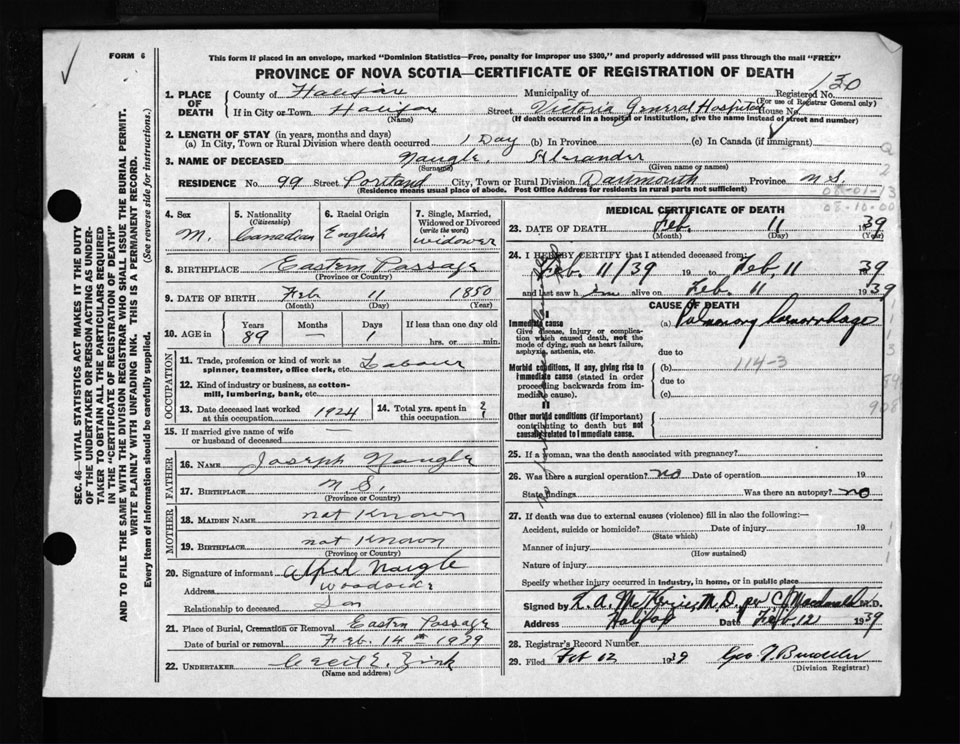 FORM 6
This form if placed in an envelope, marked "Dominion Statistics—Free, penalty for improper use $300," and properly addressed will pass through the mail "FREE"
PROVINCE OF NOVA SCOTIA—CERTIFICATE OF REGISTRATION OF DEATH
130
1. PLACE OF DEATH County of Halifax Municipality of Registered No.
(For use of Registrar General only)
If in City or Town Halifax Street Victoria General Hospital House No.
(Name) (If death occurred in a hospital or institution, give the name instead of street and number)
2. LENGTH OF STAY (in years, months and days)
(a) In City, Town or Rural Division where death occurred 1 Day (b) In Province (c) In Canada (if immigrant)
3. NAME OF DECEASED Naugle, Alexander
(Surname) (Given name or names)
RESIDENCE No. 99 Street Portland City, Town or Rural Division Dartmouth Province N.S.
(Residence means usual place of abode. Post Office Address for residents in rural parts not sufficient)
4. Sex M.
5. Nationality (Citizenship) Canadian
6. Racial Origin English
7. Single, Married, Widowed or Divorced (write the word) widower
8. BIRTHPLACE Eastern Passage
(Province or Country)
9. DATE OF BIRTH Feb 11 1850
(Month) (Day) (Year)
10. AGE in Years 89 Months — Days 1 If less than one day old hrs. or min.
OCCUPATION
11. Trade, profession or kind of work as spinner, teamster, office clerk, etc. Labour
12. Kind of industry or business, as cotton-mill, lumbering, bank, etc.
13. Date deceased last worked at this occupation 1924
14. Total yrs. spent in this occupation ?
15. If married give name of wife or husband of deceased —
FATHER
16. NAME Joseph Naugle
17. BIRTHPLACE N.S.
(Province or Country)
MOTHER
18. MAIDEN NAME not known
19. BIRTHPLACE not known
(Province or Country)
20. Signature of informant Alfred Naugle
Address Woodside
Relationship to deceased Son
21. Place of Burial, Cremation or Removal Eastern Passage
Date of burial or removal Feb. 14th 1939
22. UNDERTAKER Cecil E. Zink
(Name and address)
MEDICAL CERTIFICATE OF DEATH
23. DATE OF DEATH Feb. 11 1939
(Month) (Day) (Year)
24. I HEREBY CERTIFY that I attended deceased from
Feb. 11/39 19 to Feb. 11 1939
and last saw h im alive on Feb. 11 1939
CAUSE OF DEATH
I
Immediate cause
Give disease, injury or complication which caused death, not the mode of dying, such as heart failure, asphyxia, asthenia, etc.
(a) Pulmonary haemorrhage
due to
Morbid conditions, if any, giving rise to immediate cause (stated in order proceeding backwards from immediate cause).
(b) 114-3
due to
(c)
II
Other morbid conditions (if important) contributing to death but not causally related to immediate cause.
25. If a woman, was the death associated with pregnancy?
26. Was there a surgical operation? no Date of operation 19
State findings Was there an autopsy? no
27. If death was due to external causes (violence) fill in also the following:—
Accident, suicide or homicide? Date of injury 19
(State which)
Manner of injury
(How sustained)
Nature of injury
Specify whether injury occurred in industry, in home, or in public place
Signed by M.D. per C. Macdonald M.D.
Address Halifax Date Feb. 12 1939
28. Registrar's Record Number
29. Filed Feb 12 1939
(Division Registrar)
SEC. 46—VITAL STATISTICS ACT MAKES IT THE DUTY
OF THE UNDERTAKER OR PERSON ACTING AS UNDER-
TAKER TO OBTAIN ALL THE PARTICULARS REQUIRED
IN THE "CERTIFICATE OF REGISTRATION OF DEATH"
AND TO FILE THE SAME WITH THE DIVISION REGISTRAR WHO SHALL ISSUE THE BURIAL PERMIT.
WRITE PLAINLY WITH UNFADING INK. THIS IS A PERMANENT RECORD.
Every item of information should be carefully supplied. (See reverse side for instructions.)